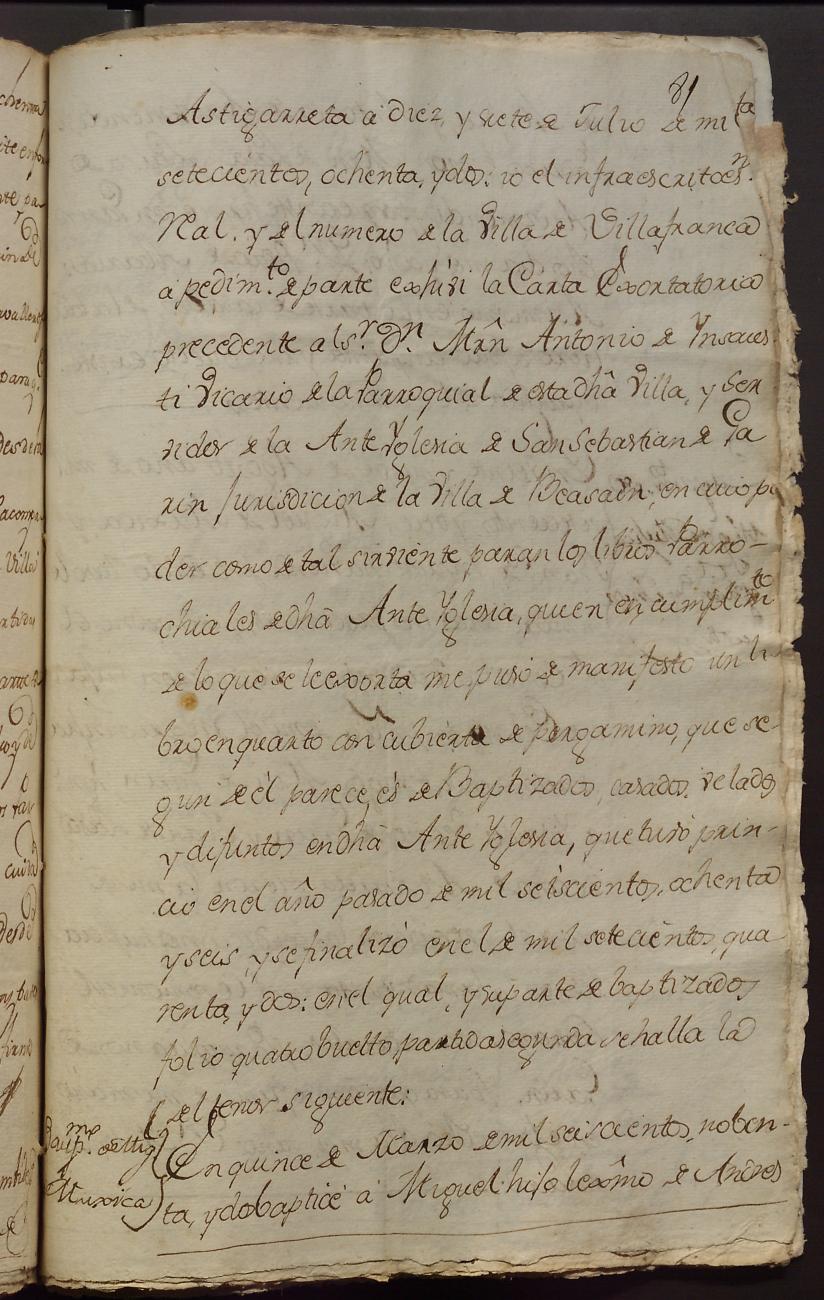 81
Astigarreta à Diez, y siete de Julio de mil
setecientos, ochenta, y dos: io el infraescrito es.n
Real. y del numero de la Villa de Villafranca
à pedim.to de parte exhivi la Carta Exortatoria
precedente al s.r D.n Mrn Antonio de Ynsaus
ti Vicario de la Parroquial de esta dhã Villa, y Ser
vidor de la Ante Yglesia de San Sebastian de Ga
rin Jurisdicion de la Villa de Beasaìn, en cuio po
der como de tal sirviente paran los libros Parro-
chiales de dhã Ante Yglesia, quien en cumplim.to
de lo que se le exorta me puso de manifesto un li
bro en quarto con cubierta de pergamino, que se-
gun de èl parece, és de Baptizados, casados, velados
y difuntos en dhã Ante Yglesia, que tubó prin-
cio en el año pasado de mil seiscientos, ochenta
y seis, y se finalizó en el de mil setecientos, qua
renta, y dos: en el qual, y su parte de baptizados
folio quatro buelto, partida segunda se halla la
del tenor siguiente:
En quince de Marzo de mil seiscientos, noben-
ta, y dos baptice à Miguel hijo lexmo de Andres
Múxica